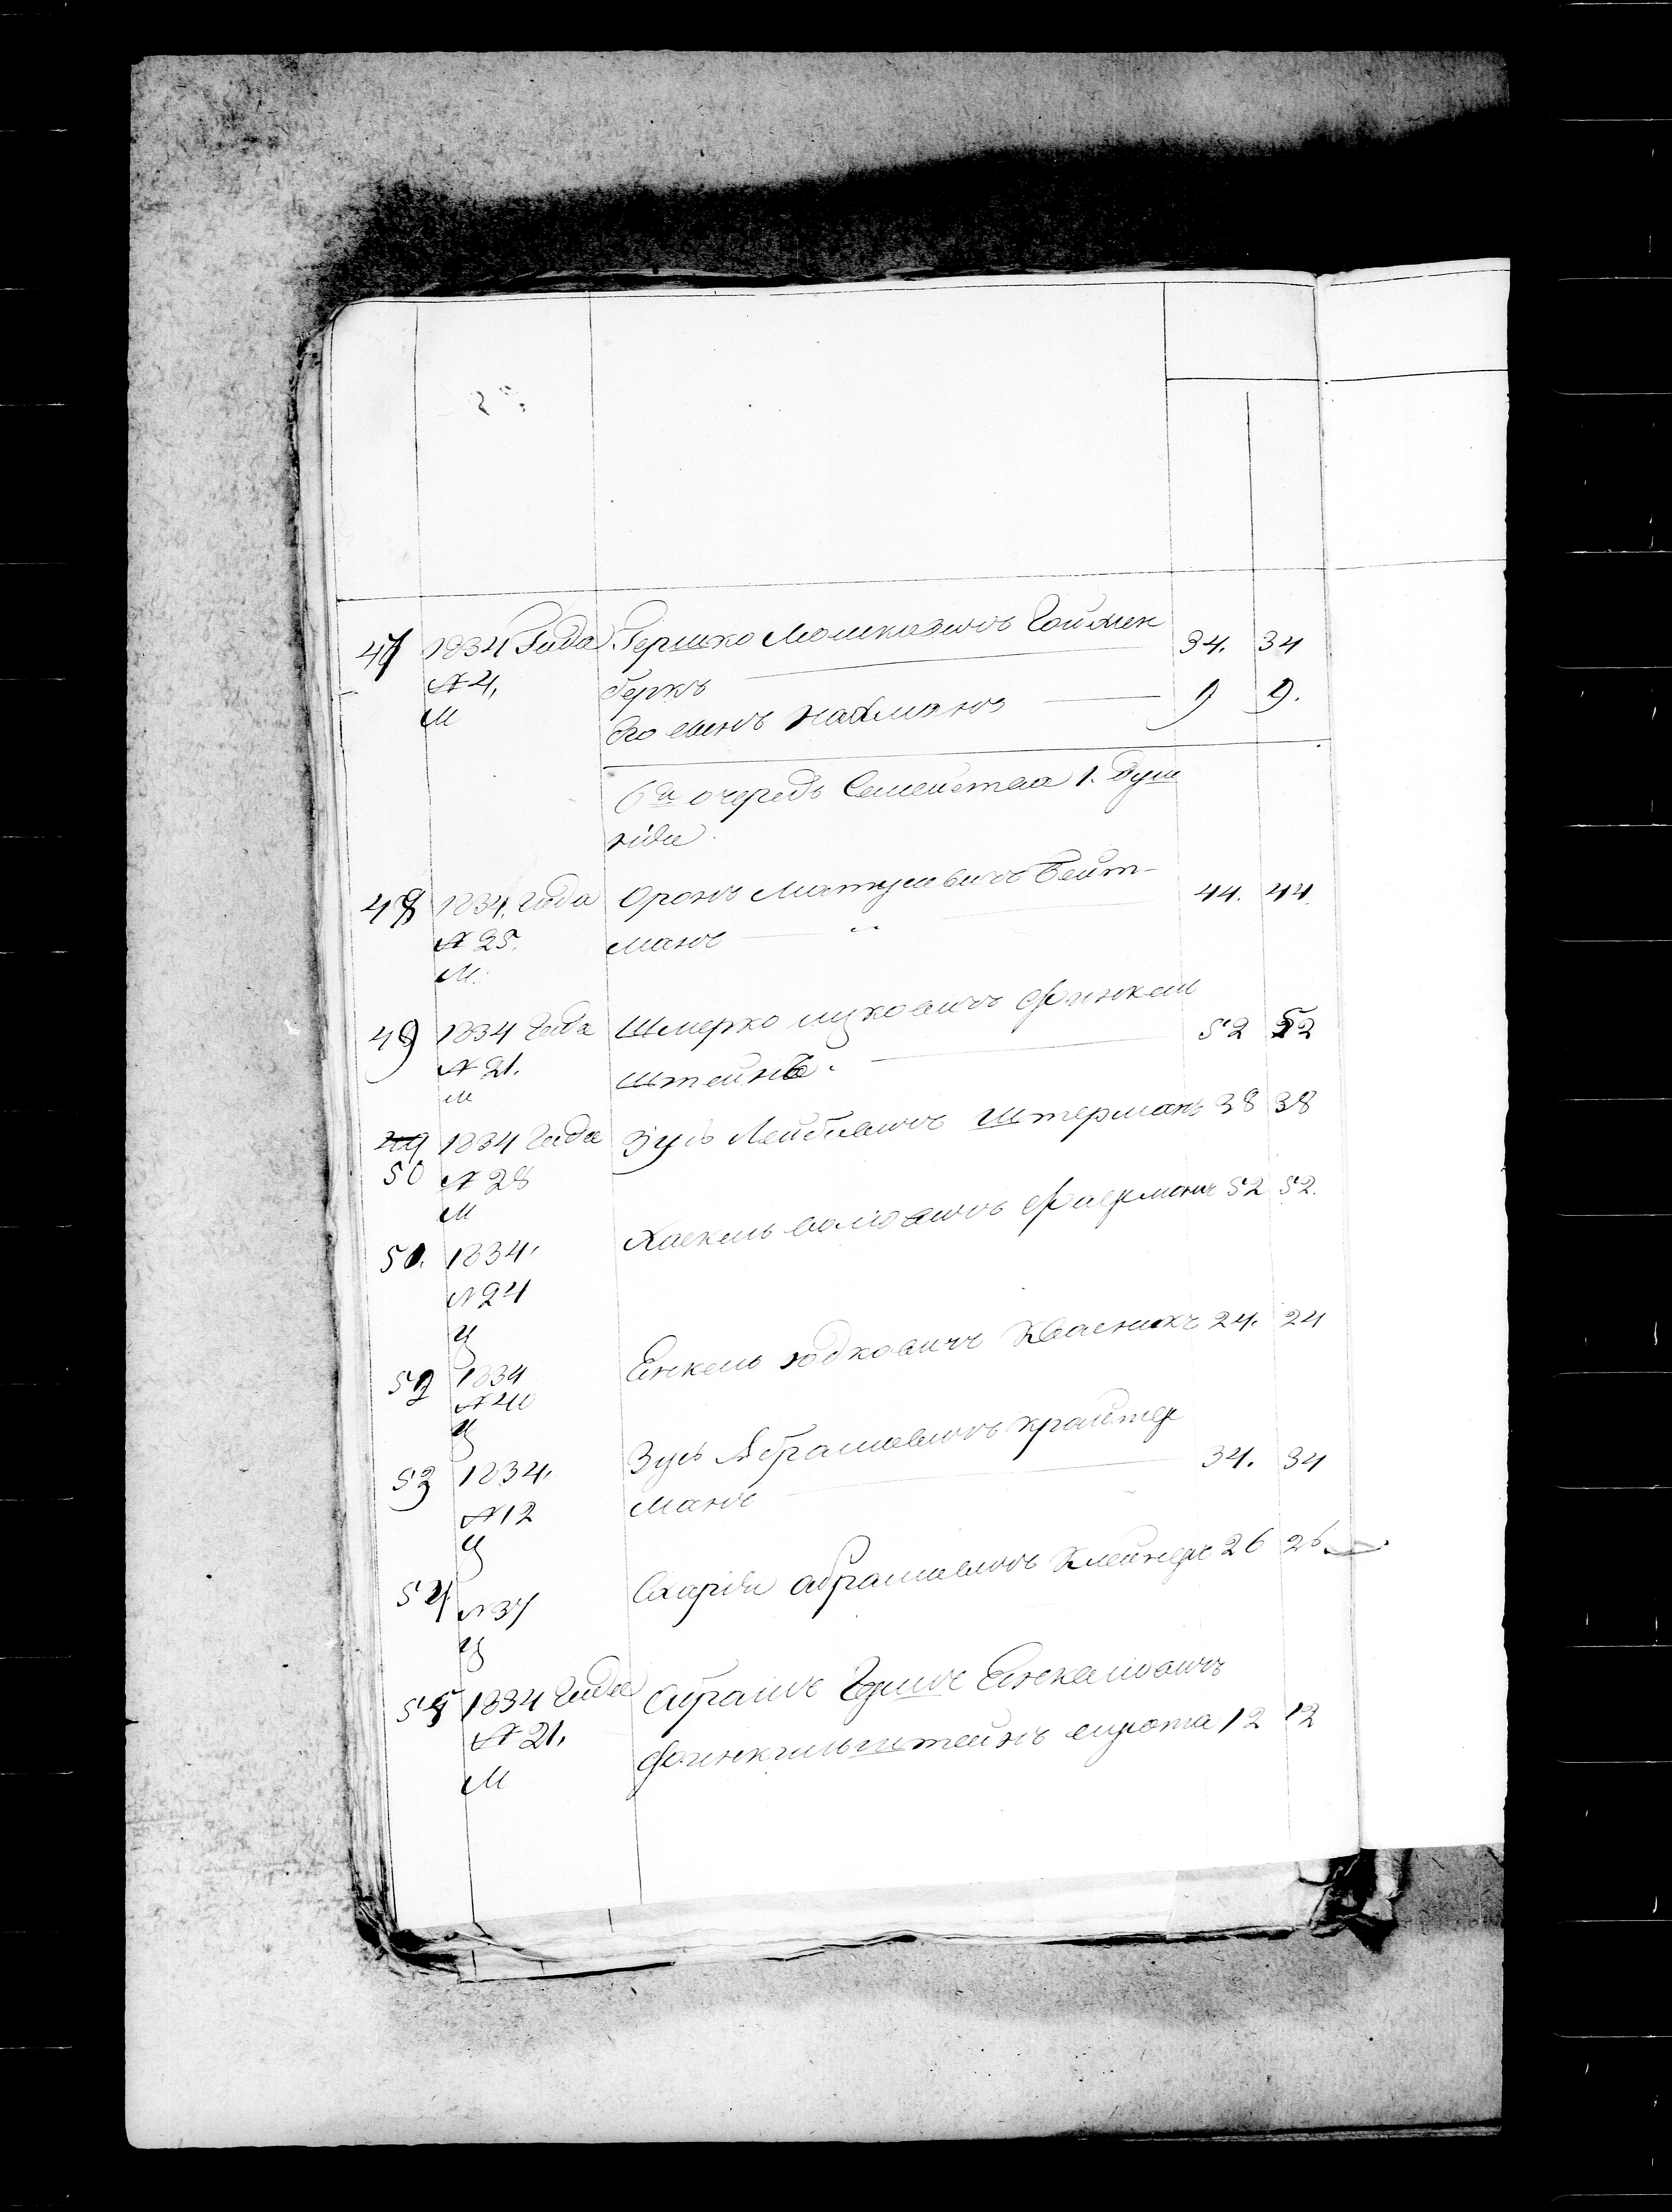 47 1834 Года Гершко Мошковичъ Гойхен 34. 34
№ 4, беркъ
М Его сынъ Нахманъ 9 9.
6я очередь Семейства 1. душ
ніи
48 1834. Года Оронъ Матусевичъ Бейт- 44. 44
№ 25. манъ
М.
49 1834 Года Шмерко Ицковичъ Финкель 52 52
№ 21. штейнъ.
М
49 1834 Года Зусь Лейбовичъ Штерманъ 38 38
50 № 28
М
51. 1834. Хаскель Файерманъ 52 52.
№ 24
Ц
52 1834 Енкель Юдковичъ Квасникъ 24. 24
№ 40
Ц
53 1834. Зусь Абрамовичъ Крайтер 34. 34
№ 12 манъ
Ц
54 Абрамовичъ Клейнеръ 26 26
№ 37
Ц
55 1834 Года Абрамъ Гершъ Енкелевичъ
№ 21. Финкильштейнъ сирота 12 12
М